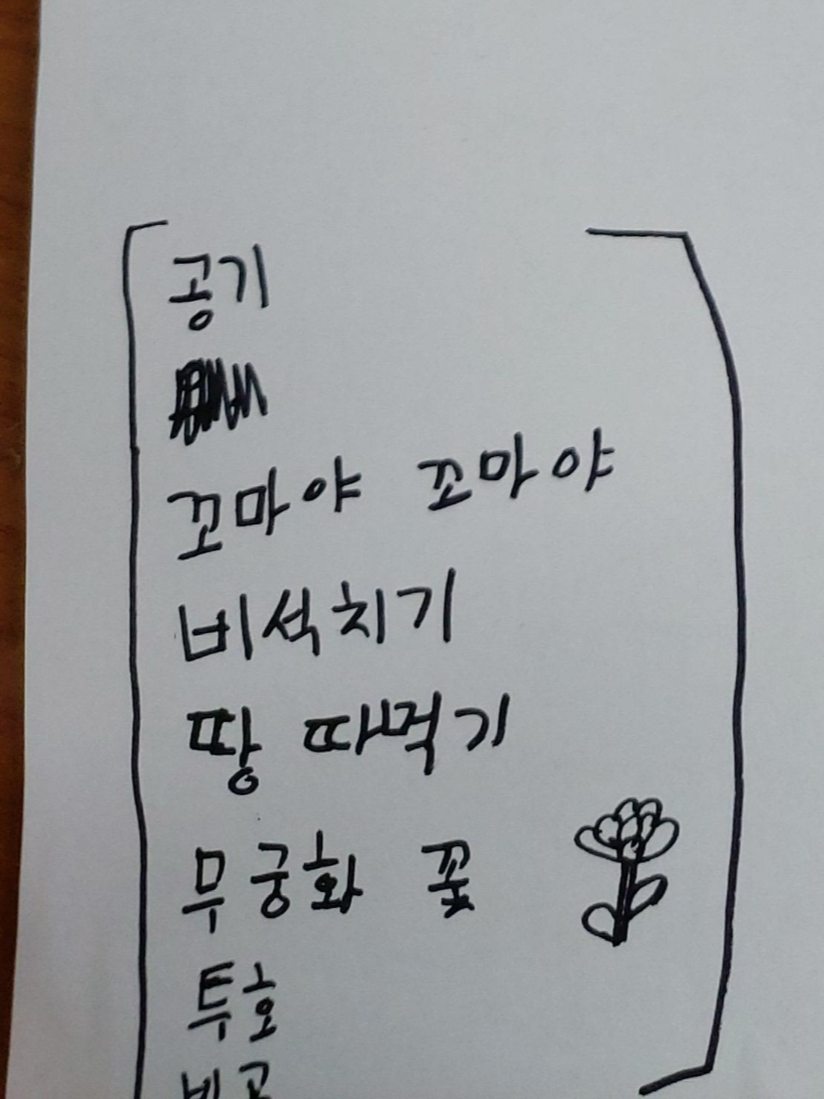 공기
꼬마야 꼬마야
비석치기
땅 따먹기
무궁화 꽃
투호